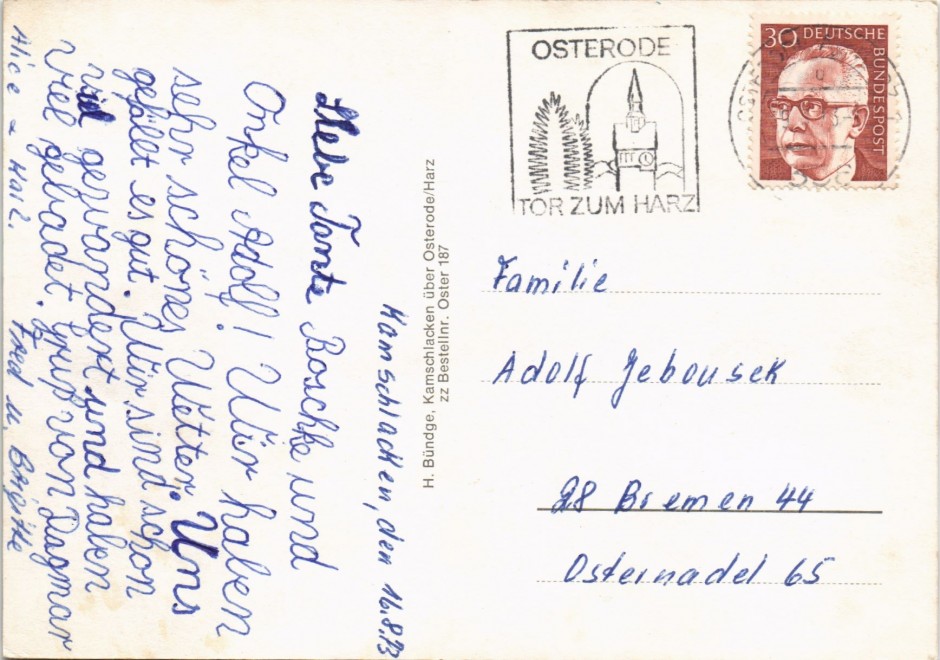 Kamschlacken, den 16.8.73
Liebe Tante Boschke und
Onkel Adolf! Wir haben
sehr schönes Wetter. Uns
gefällt es gut. Wir sind schon
viel gewandert und haben
viel gebadet. Gruß von Dagmar
Fred u. Brigitte
H. Bündge, Kamschlacken über Osterode/Harz
zz Bestellnr. Oster 187
OSTERODE
TOR ZUM HARZ
30 DEUTSCHE
BUNDESPOST
Familie
Adolf Jebousek
28 Bremen 44
Osternadel 65